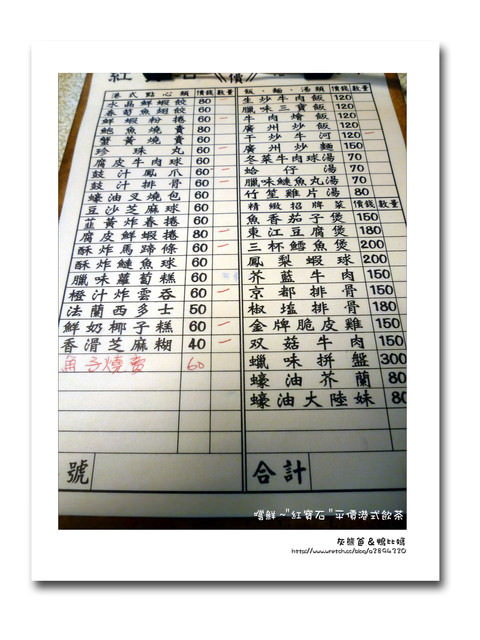 紅寶石 《價》
港式點心類 價錢 數量
水晶鮮蝦餃 80 一
魚翅餃 60
鮮蝦粉捲 60 一
鮑魚燒賣 80
蟹黃燒賣 60
珍珠丸 60 一
腐皮牛肉球 60
鼓汁鳳爪 60 一
鼓汁排骨 60 一
蠔油叉燒包 60
豆沙芝麻球 60
韮黃炸春捲 60
腐皮鮮蝦捲 80 一
酥炸馬蹄條 60 一
酥炸鰱魚球 60
臘味蘿蔔糕 60
橙汁炸雲吞 60 一
法蘭西多士 50
鮮奶椰子糕 60 一
香滑芝麻糊 40 一
魚子燒賣 60
號
飯、麵、湯類 價錢 數量
生炒牛肉飯 120
臘味三寶飯 120
牛肉燴飯 120
廣州炒飯 120
干炒牛河 120 一
廣州炒麵 150
冬菜牛肉球湯 70
蛤仔湯 70
臘味鰱魚丸湯 70
竹笙雞片湯 80
精緻招牌菜 價錢 數量
魚香茄子煲 150
東江豆腐煲 180
三杯鱈魚煲 200
鳳梨蝦球 200
芥藍牛肉 150
京都排骨 150
椒塩排骨 180
金牌脆皮雞 150
双菇牛肉 150
蠟味拼盤 300
蠔油芥蘭 80
蠔油大陸妹 80
合計
嚐鮮~"紅寶石"平價港式飲茶
灰熊爸&鴨比媽
http://www.wretch.cc/blog/a2894330